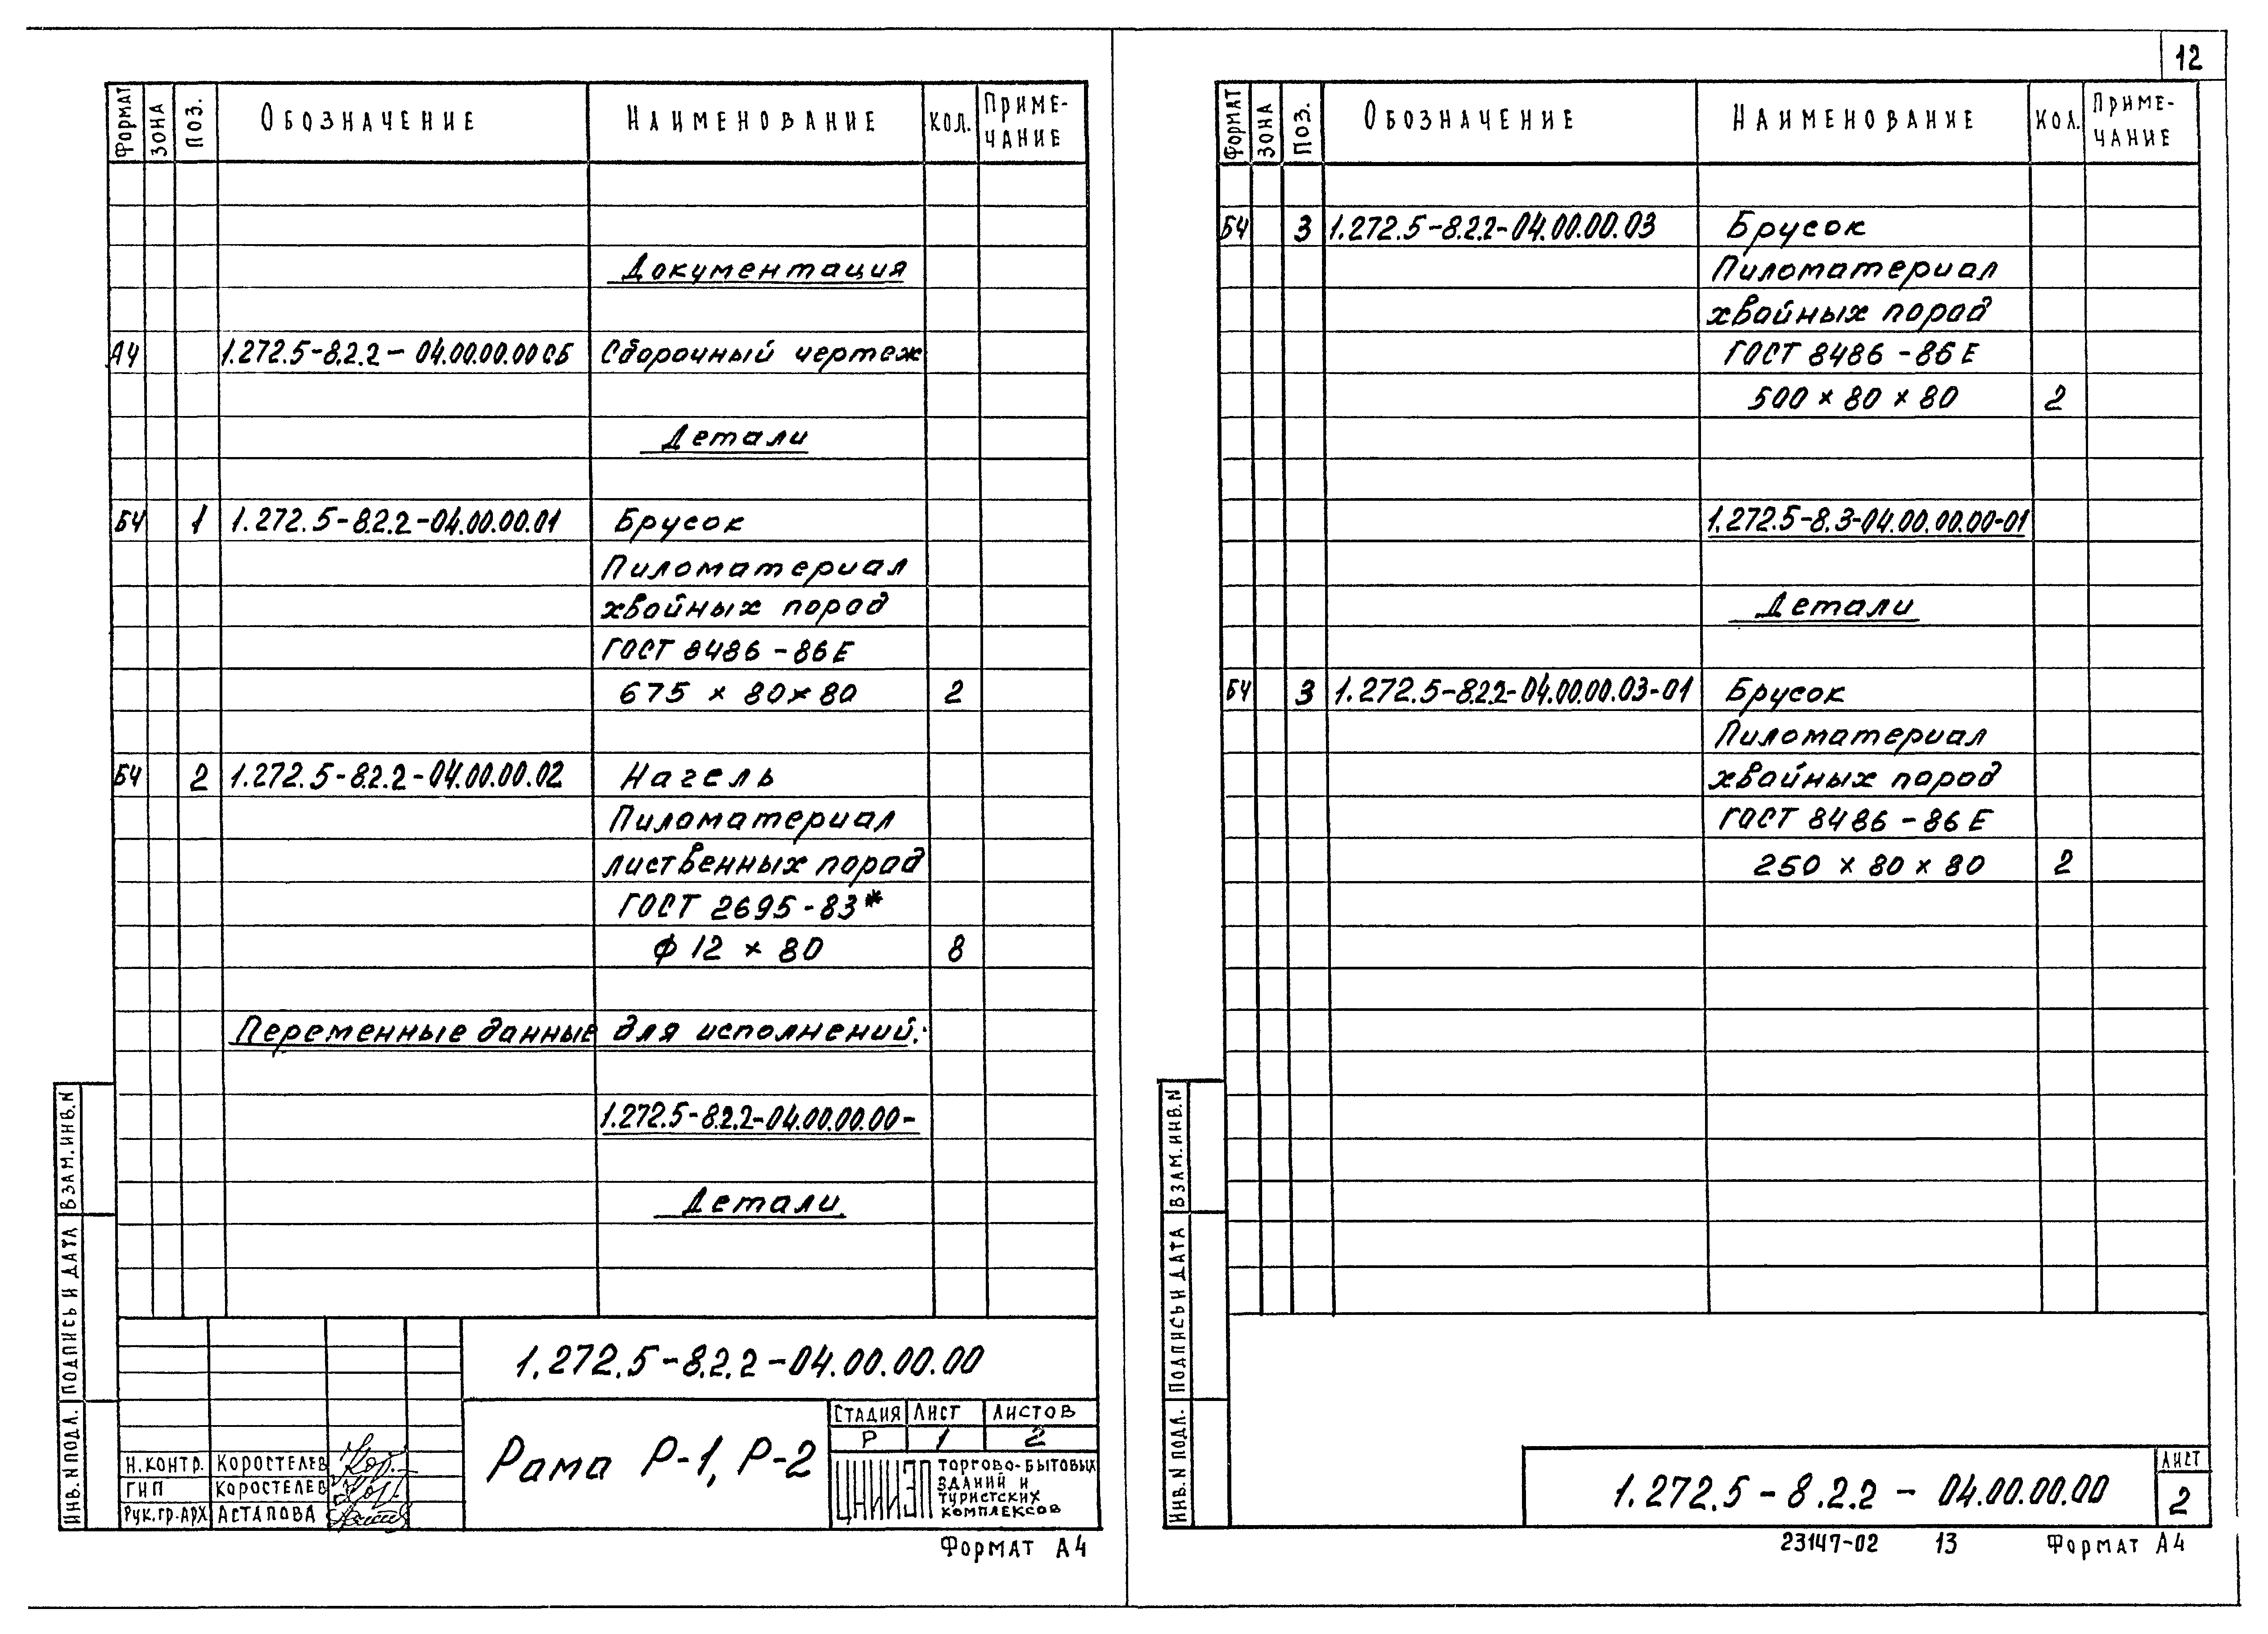 12
ФОРМАТ ЗОНА ПОЗ. ОБОЗНАЧЕНИЕ НАИМЕНОВАНИЕ КОЛ. ПРИМЕ-
ЧАНИЕ
Документация
А4 1.272.5-8.2.2-04.00.00.00СБ Сборочный чертеж
Детали
БЧ 1 1.272.5-8.2.2-04.00.00.01 Брусок
Пиломатериал
хвойных пород
ГОСТ 8486-86Е
675 × 80 × 80 2
БЧ 2 1.272.5-8.2.2-04.00.00.02 Нагель
Пиломатериал
лиственных пород
ГОСТ 2695-83*
ϕ 12 × 80 8
Переменные данные для исполнений:
1.272.5-8.2.2-04.00.00.00-
Детали
ВЗАМ.ИНВ.N
ПОДПИСЬ И ДАТА
ИНВ.N ПОДЛ.
1.272.5-8.2.2-04.00.00.00
Рама Р-1, Р-2
СТАДИЯ ЛИСТ ЛИСТОВ
Р 1 2
Н.КОНТР. КОРОСТЕЛЕВ
ГИП КОРОСТЕЛЕВ
РУК.ГР.АРХ АСТАПОВА
ЦНИИЭП ТОРГОВО-БЫТОВЫХ
ЗДАНИЙ И
ТУРИСТСКИХ
КОМПЛЕКСОВ
ФОРМАТ А4
ФОРМАТ ЗОНА ПОЗ. ОБОЗНАЧЕНИЕ НАИМЕНОВАНИЕ КОЛ. ПРИМЕ-
ЧАНИЕ
БЧ 3 1.272.5-8.2.2-04.00.00.03 Брусок
Пиломатериал
хвойных пород
ГОСТ 8486-86Е
500 × 80 × 80 2
1.272.5-8.3-04.00.00.00-01
Детали
БЧ 3 1.272.5-8.2.2-04.00.00.03-01 Брусок
Пиломатериал
хвойных пород
ГОСТ 8486-86Е
250 × 80 × 80 2
ВЗАМ.ИНВ.N
ПОДПИСЬ И ДАТА
ИНВ.N ПОДЛ.
1.272.5-8.2.2-04.00.00.00
ЛИСТ
2
23147-02 13 ФОРМАТ А4